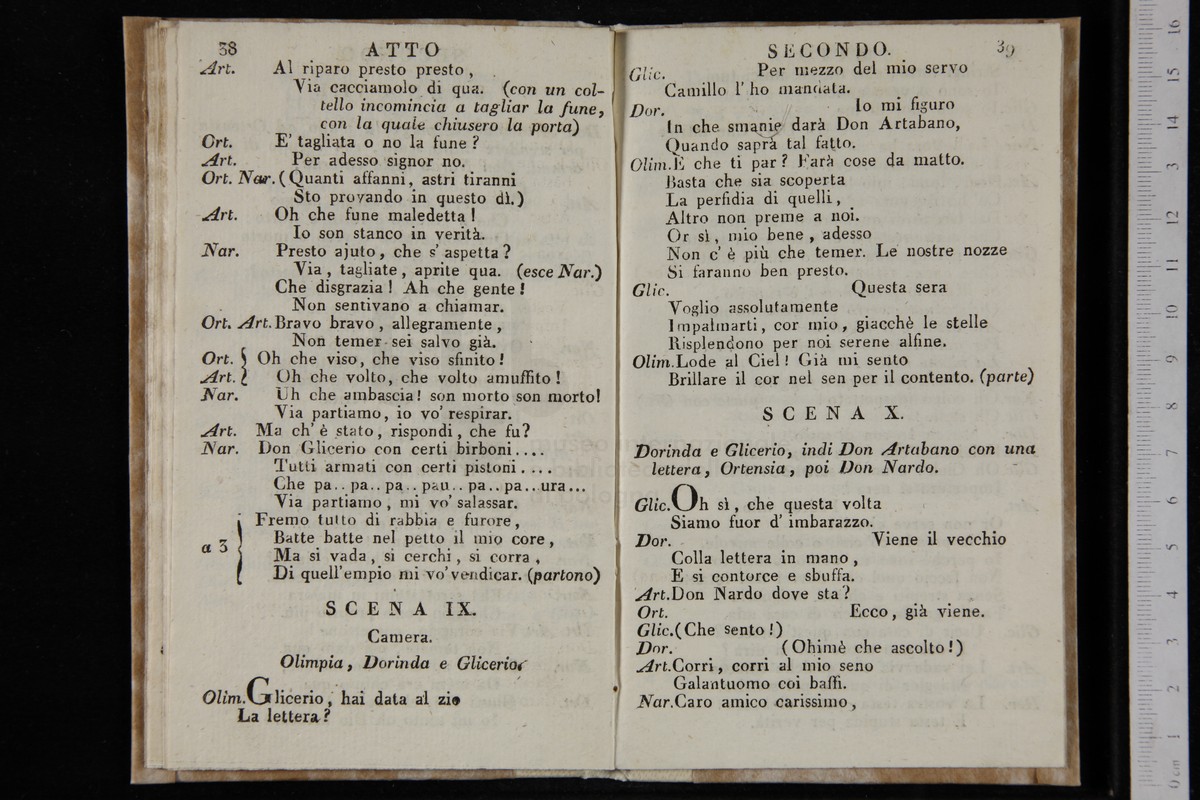 38
ATTO
Art. Al riparo presto presto,
Via cacciamolo di qua. (con un col-
tello incomincia a tagliar la fune,
con la quale chiusero la porta)
Ort. E' tagliata o no la fune?
Art. Per adesso signor no.
Ort. Nar. (Quanti affanni, astri tiranni
Sto provando in questo dì.)
Art. Oh che fune maledetta!
Io son stanco in verità.
Nar. Presto ajuto, che s' aspetta?
Via, tagliate, aprite qua. (esce Nar.)
Che disgrazia! Ah che gente!
Non sentivano a chiamar.
Ort. Art. Bravo bravo, allegramente,
Non temer sei salvo già.
Ort. Oh che viso, che viso sfinito!
Art. Oh che volto, che volto amuffito!
Nar. Uh che ambascia! son morto son morto!
Via partiamo, io vo' respirar.
Art. Ma ch' è stato, rispondi, che fu?
Nar. Don Glicerio con certi birboni....
Tutti armati con certi pistoni....
Che pa.. pa.. pa.. pau.. pa.. pa.. ura...
Via partiamo, mi vo' salassar.
a 3
Fremo tutto di rabbia e furore,
Batte batte nel petto il mio core,
Ma si vada, si cerchi, si corra,
Di quell'empio mi vo' vendicar. (partono)
SCENA IX.
Camera.
Olimpia, Dorinda e Glicerio.
Olim. Glicerio, hai data al zio
La lettera?
SECONDO.
39
Glic. Per mezzo del mio servo
Camillo l' ho mandata.
Dor. Io mi figuro
In che smanie darà Don Artabano,
Quando saprà tal fatto.
Olim. E che ti par? Farà cose da matto.
Basta che sia scoperta
La perfidia di quelli,
Altro non preme a noi.
Or sì, mio bene, adesso
Non c' è più che temer. Le nostre nozze
Si faranno ben presto.
Glic. Questa sera
Voglio assolutamente
Impalmarti, cor mio, giacchè le stelle
Risplendono per noi serene alfine.
Olim. Lode al Ciel! Già mi sento
Brillare il cor nel sen per il contento. (parte)
SCENA X.
Dorinda e Glicerio, indi Don Artabano con una
lettera, Ortensia, poi Don Nardo.
Glic. Oh sì, che questa volta
Siamo fuor d' imbarazzo.
Dor. Viene il vecchio
Colla lettera in mano,
E si contorce e sbuffa.
Art. Don Nardo dove sta?
Ort. Ecco, già viene.
Glic. (Che sento!)
Dor. (Ohimè che ascolto!)
Art. Corri, corri al mio seno
Galantuomo coi baffi.
Nar. Caro amico carissimo,
0 cm 1 2 3 4 5 6 7 8 9 10 11 12 13 14 15 16